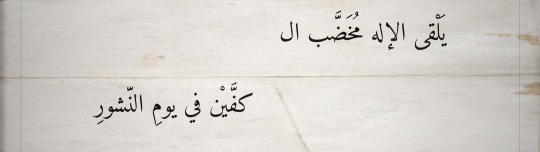 يَلْقى الإله مُخَضَّب ال
كفَّيْن في يومِ النّشورِ